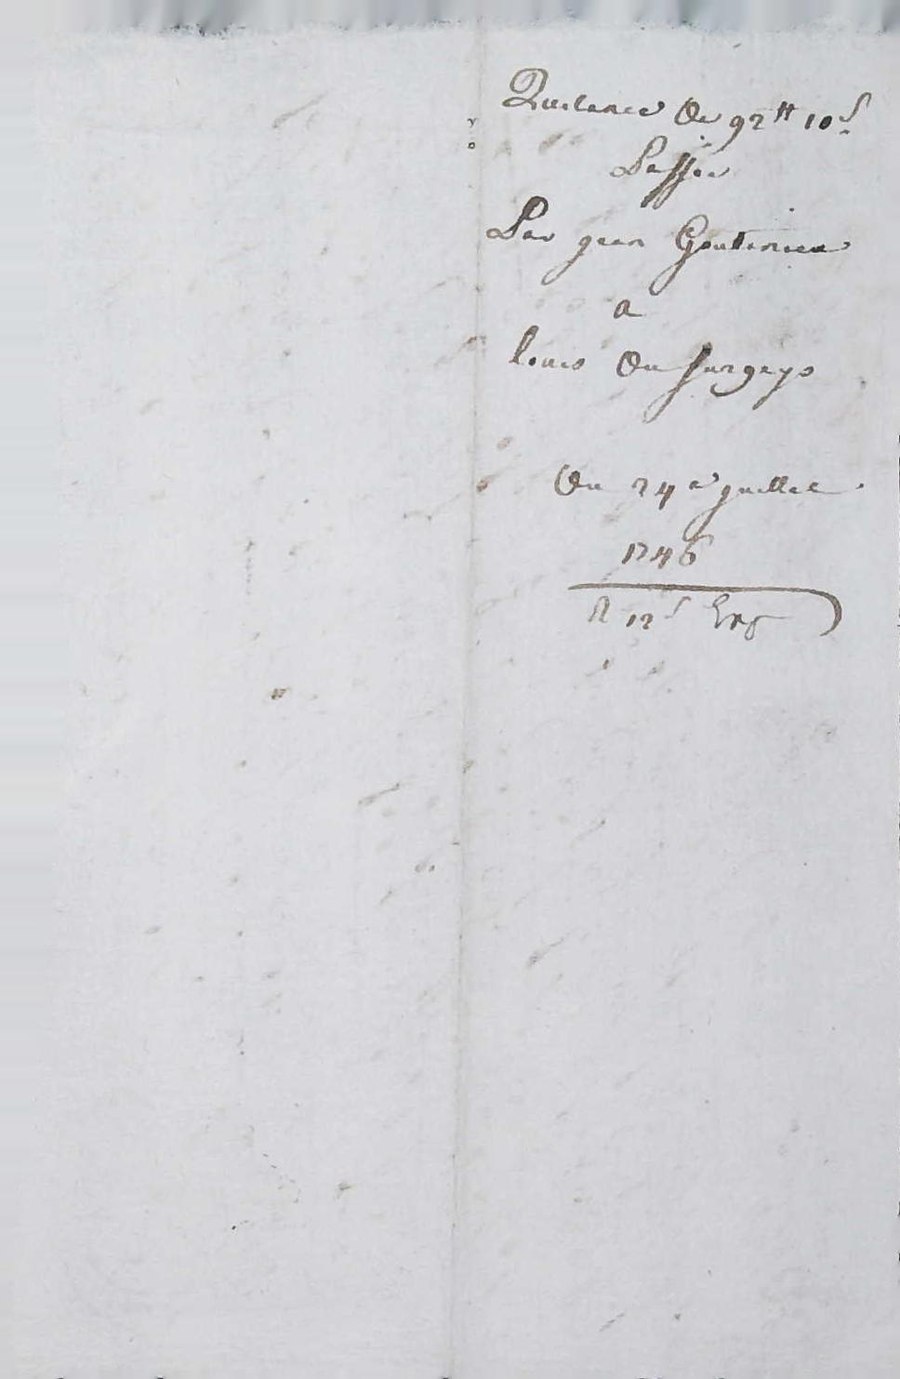 Quitance De 92tt 10s
Passée
Par jean Goutenieu
a
louis Du surgeys
Du 24e juillet
1746
R 12s